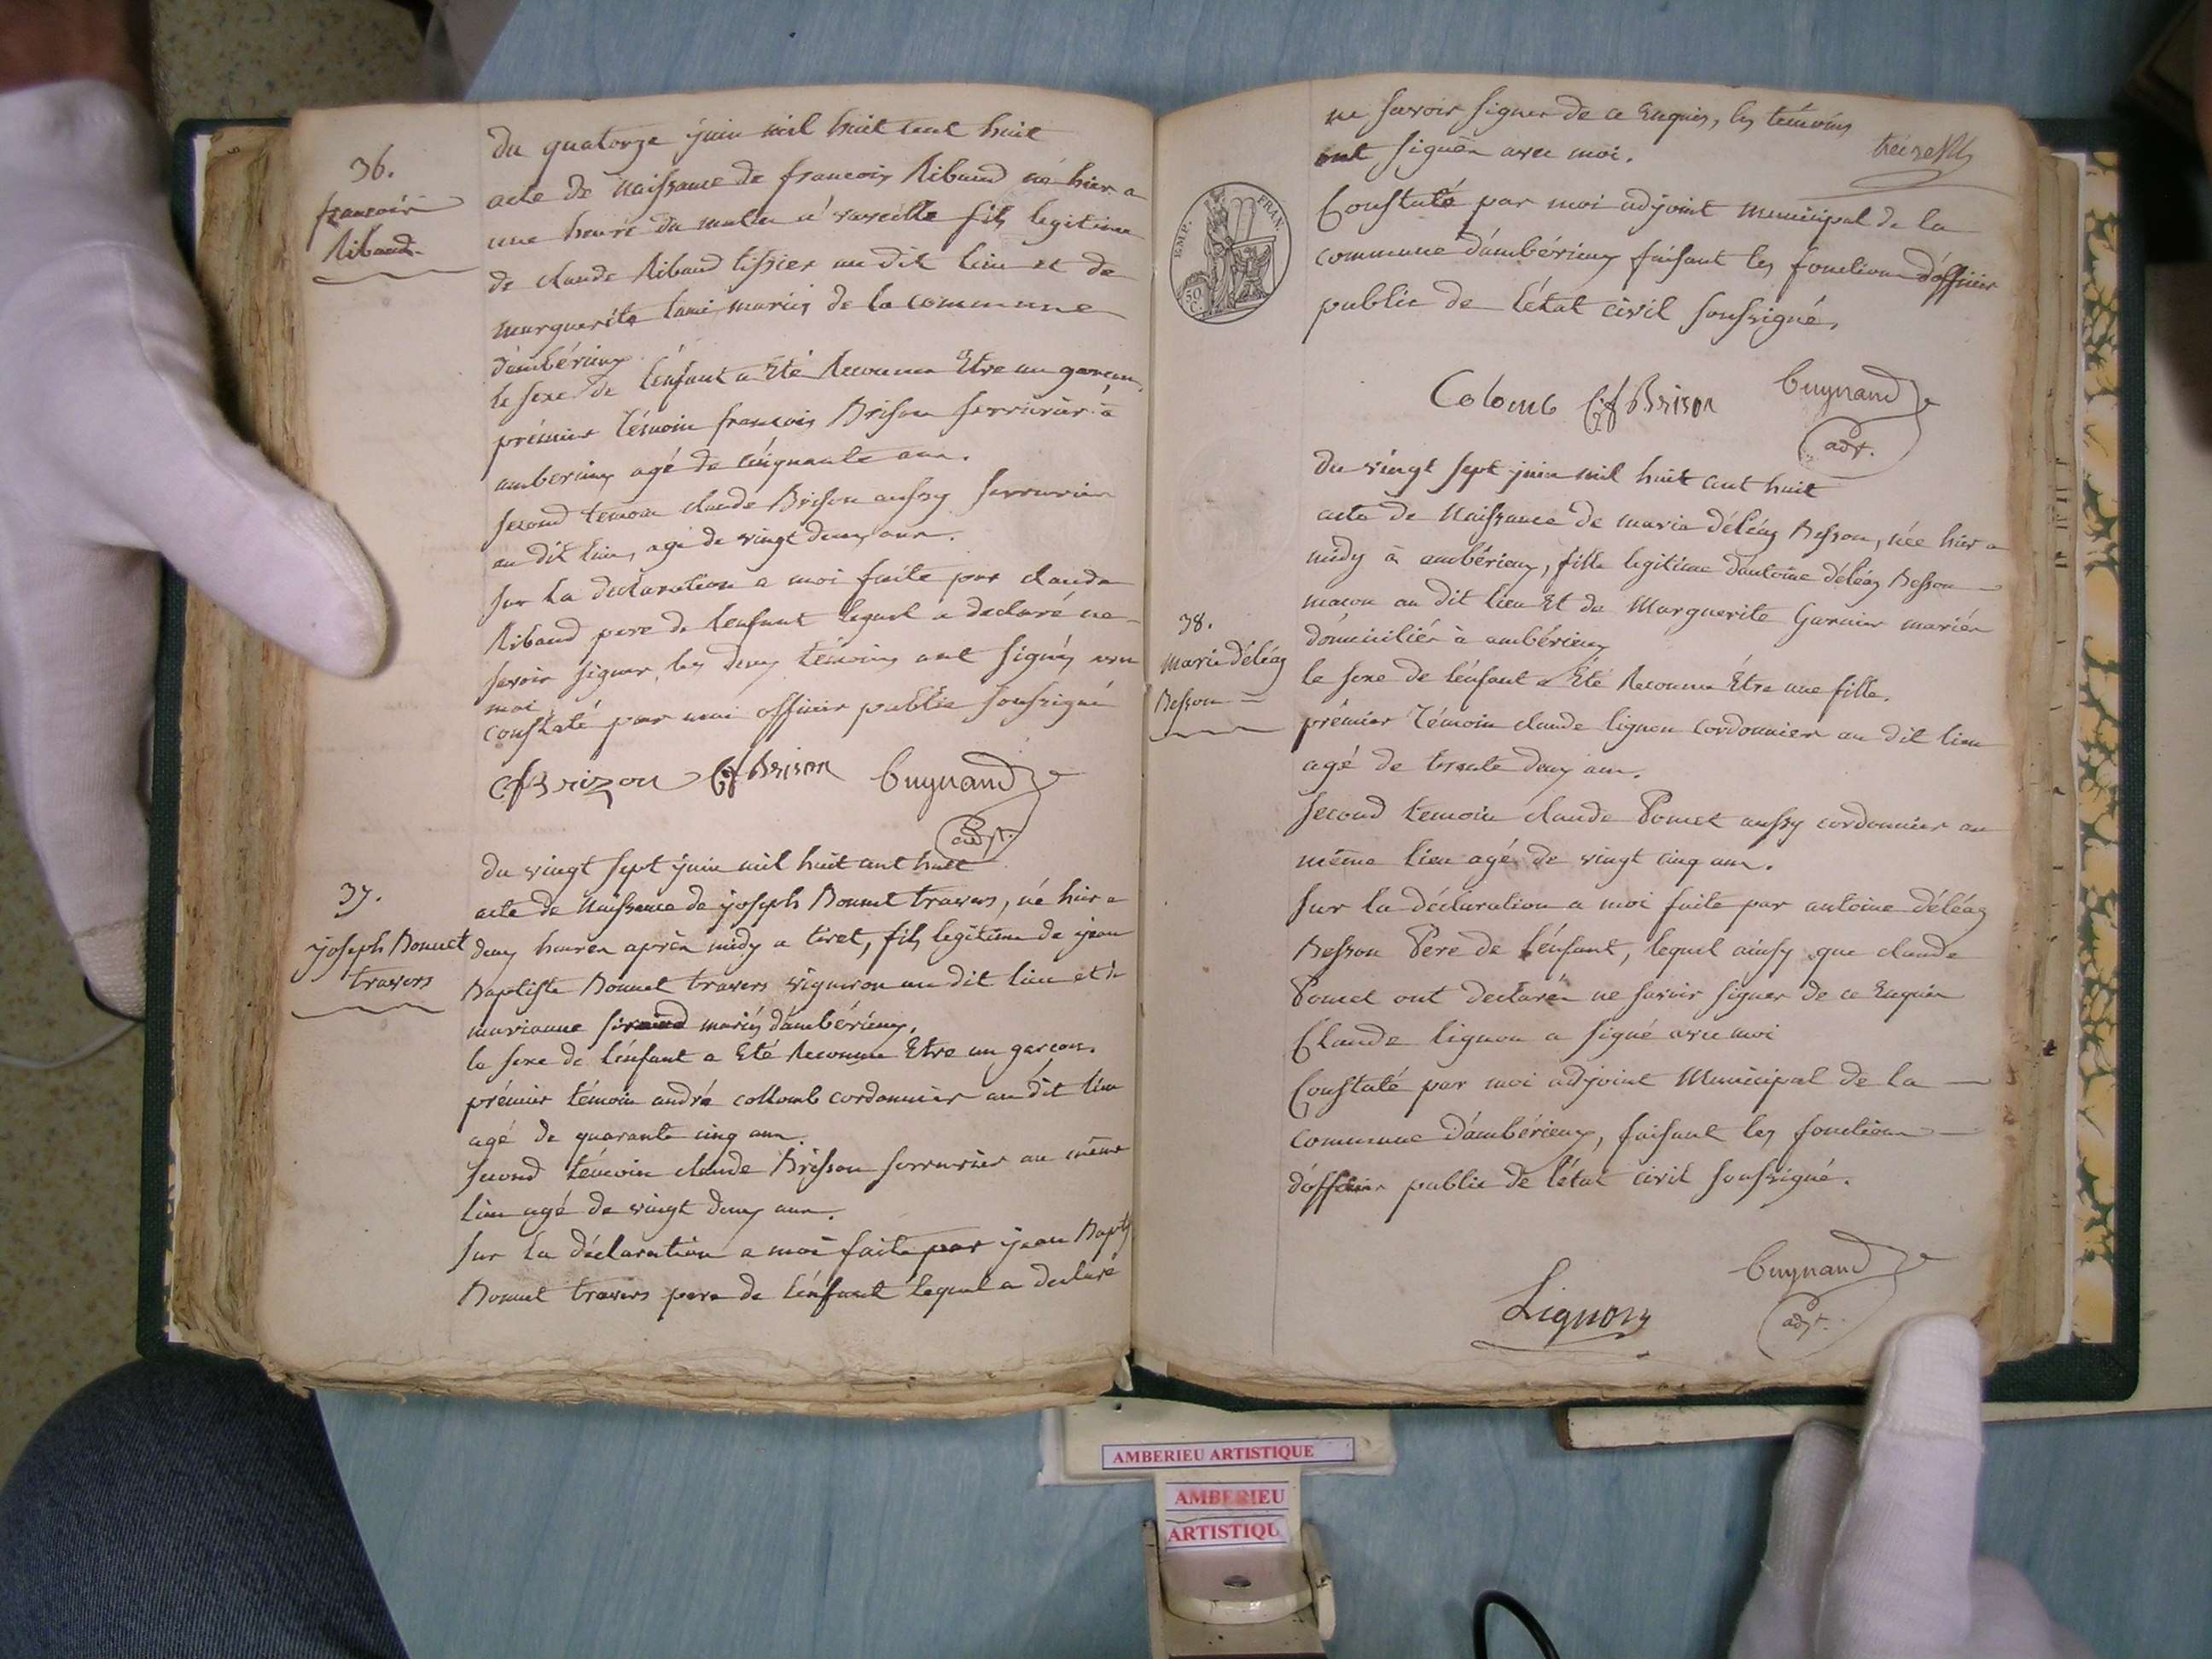 36.
francois
Ribaud.
du quatorze juin mil huit cent huit
acte de Naissance de francois Ribaud né hier a
une heure du matin a vareille fils legitime
de claude Ribaud tissier au dit lieu et de
marguerite mariés de la commune
d'ambérieux
le sexe de l'enfant a Eté Reconnu Etre un garcon,
prémier témoin francois Brison serrurier à
amberieux agé de cinquante ans.
second temoin claude Brison aussy serrurier
au dit lieu, agé de vingt deux ans.
sur la declaration a moi faite par claude
Ribaud pere de lenfant lequel a declaré ne
savoir signer, les deux témoins ont signés avec
moi
constaté par moi officier public soussigné
Brizon Cf Brison Cuynaud
adjt.
37.
joseph Bonnet
travers
du vingt sept juin mil huit cent huit
acte de Naissance de joseph Bonnet travers, né hier a
deux heures après midy a tiret, fils legitime de jean
Baptiste Bonnet travers vigneron au dit lieu et de
marianne mariés d'ambérieux.
le sexe de l'enfant a Eté Reconnu Etre un garcon.
prémier témoin andré collomb cordonnier au dit lieu
agé de quarante cinq ans.
second témoin claude Brisson serrurier au même
lieu agé de vingt deux ans.
sur la déclaration a moi faite par jean Bapte
Bonnet travers pere de l'énfant lequel a declaré
ne savoir signer de ce Enquis, les témoins
ont signés avec moi.
Constaté par moi adjoint municipal de la
commune d'ambérieux faisant les fonctions d'officier
public de l'état civil soussigné,
EMP. FRAN.
50
C.
Colomb Cf Brison Cuynaud
adjt.
38.
marie déléaz
Besson
du vingt sept juin mil huit cent huit
acte de Naissance de marie déléaz Besson, née hier a
midy à ambérieux, fille legitime d'antoine déléaz Besson
macon au dit lieu Et de Marguerite Garnier mariés
domiciliés à ambérieux
le sexe de l'énfant a Eté Reconnu Etre une fille.
prémier témoin claude lignon cordonnier au dit lieu
agé de trente deux ans.
second temoin claude Pomet aussy cordonnier au
même lieu agé de vingt cinq ans.
sur la déclaration a moi faite par antoine déléaz
Besson Pere de l'énfant, lequel ainsy que claude
Pomet ont declarés ne savoir signer de ce Enquis
Claude lignon a signé avec moi
Constaté par moi adjoint Municipal de la
commune d'ambérieux, faisant les fonctions
d'officier public de l'état civil soussigné.
Lignon Cuynaud
adjt.
AMBERIEU ARTISTIQUE
AMBERIEU
ARTISTIQU